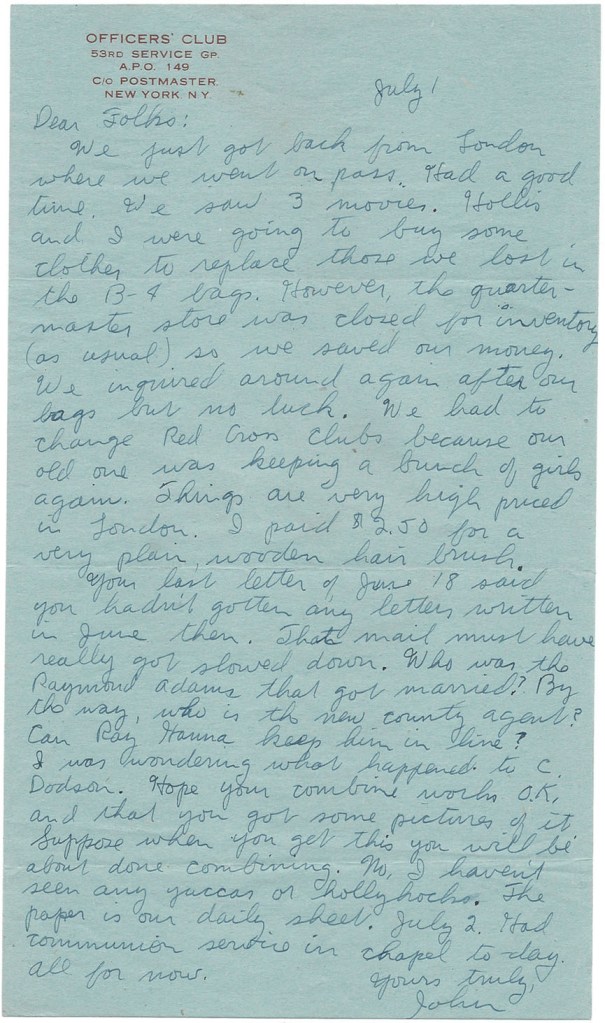 OFFICERS' CLUB
53RD SERVICE GP.
A.P.O. 149
C/O POSTMASTER
NEW YORK N.Y.
July 1
Dear Folks:
We just got back from London
where we went on pass. Had a good
time. We saw 3 movies. Hollis
and I were going to buy some
clothes to replace those we lost in
the B-4 bags. However, the quarter-
master store was closed for inventory
(as usual) so we saved our money.
We inquired around again after our
bags but no luck. We had to
change Red Cross Clubs because our
old one was keeping a bunch of girls
again. Things are very high priced
in London. I paid $2.50 for a
very plain, wooden hair brush.
Your last letter of June 18 said
you hadn't gotten any letters written
in June then. That mail must have
really got slowed down. Who was the
Raymond Adams that got married? By
the way, who is the new county agent?
Can Ray Hanna keep him in line?
I was wondering what happened to C.
Dodson. Hope your combine works O.K.
and that you got some pictures of it
Suppose when you get this you will be
about done combining. No, I haven't
seen any yuccas or hollyhocks. The
paper is our daily sheet. July 2. Had
communion service in chapel to-day.
All for now.
Yours truly,
John